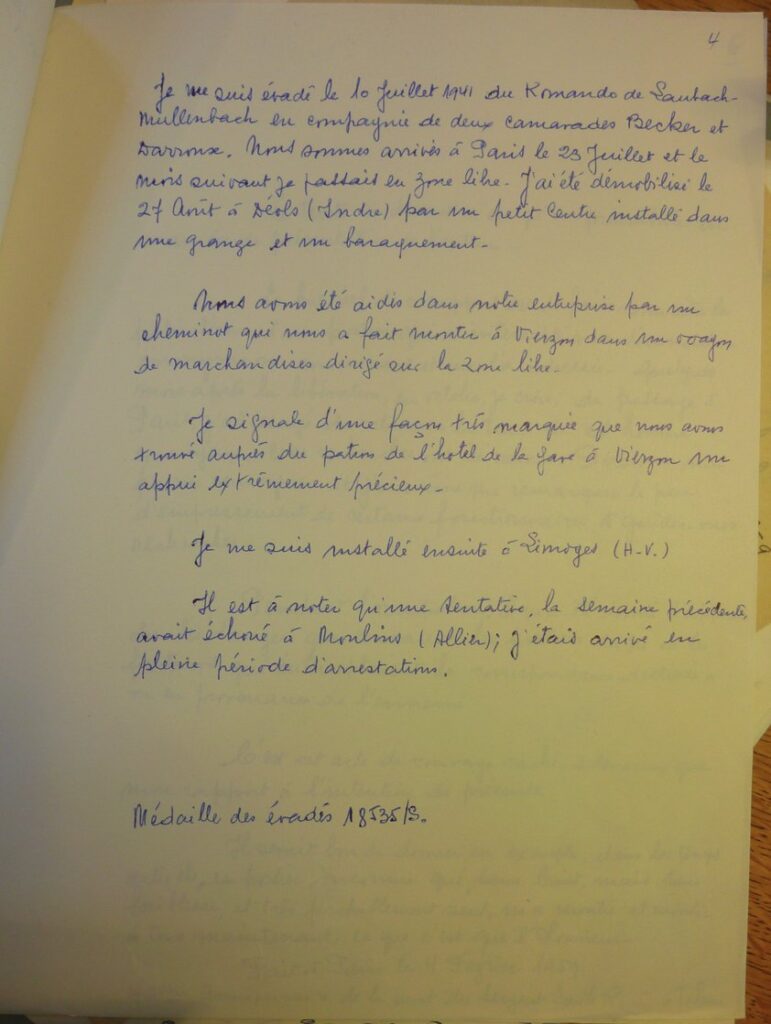 4
Je me suis évadé le 10 Juillet 1941 du Komando de Laubach-
Mullenbach en compagnie de deux camarades Becker et
Darroux. Nous sommes arrivés à Paris le 23 Juillet et le
mois suivant je passais en zone libre. J'ai été démobilisé le
27 Août à Déols (Indre) par un petit Centre installé dans
une grange et un baraquement.
Nous avons été aidés dans notre entreprise par un
cheminot qui nous a fait monter à Vierzon dans un wagon
de marchandises dirigé sur la zone libre.
Je signale d'une façon très marquée que nous avons
trouvé auprès du patron de l'hotel de la Gare à Vierzon un
appui extrêmement précieux.
Je me suis installé ensuite à Limoges (H-V.)
Il est à noter qu'une tentative, la semaine précédente,
avait échoué à Moulins (Allier); j'étais arrivé en
pleine période d'arrestations.
Médaille des évadés 18535/S.